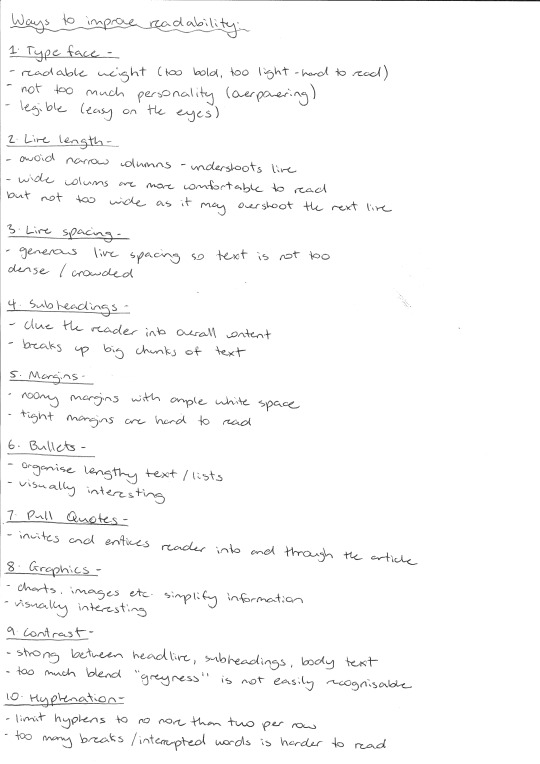 Ways to improve readability:
1. Typeface -
- readable weight (too bold, too light - hard to read)
- not too much personality (overpowering)
- legible (easy on the eyes)
2. Line length -
- avoid narrow columns - undershoots line
- wide colums are more comfortable to read
but not too wide as it may overshoot the next line
3. Line spacing -
- generous line spacing so text is not too
dense / crowded
4. Subheadings -
- clue the reader into overall content
- breaks up big chunks of text
5. Margins -
- roomy margins with ample white space
- tight margins are hard to read
6. Bullets -
- organise lengthy text / lists
- visually interesting
7. Pull Quotes -
- invites and entices reader into and through the article
8. Graphics -
- charts, images etc. simplify information
- visually interesting
9. Contrast -
- strong between headline, subheadings, body text
- too much blend "greyness" is not easily recognisable
10. Hyphenation -
- limit hyphens to no more than two per row
- too many breaks / interrupted words is harder to read